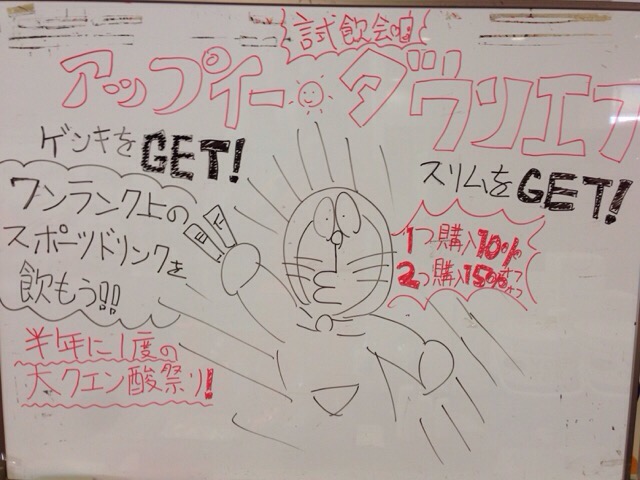 試飲会
アップイー・ダウンエフ
ゲンキをGET!
スリムをGET!
ワンランク上の
スポーツドリンクを
飲もう!!
1つ購入10%
2つ購入15%
半年に1度の
大クエン酸祭り!